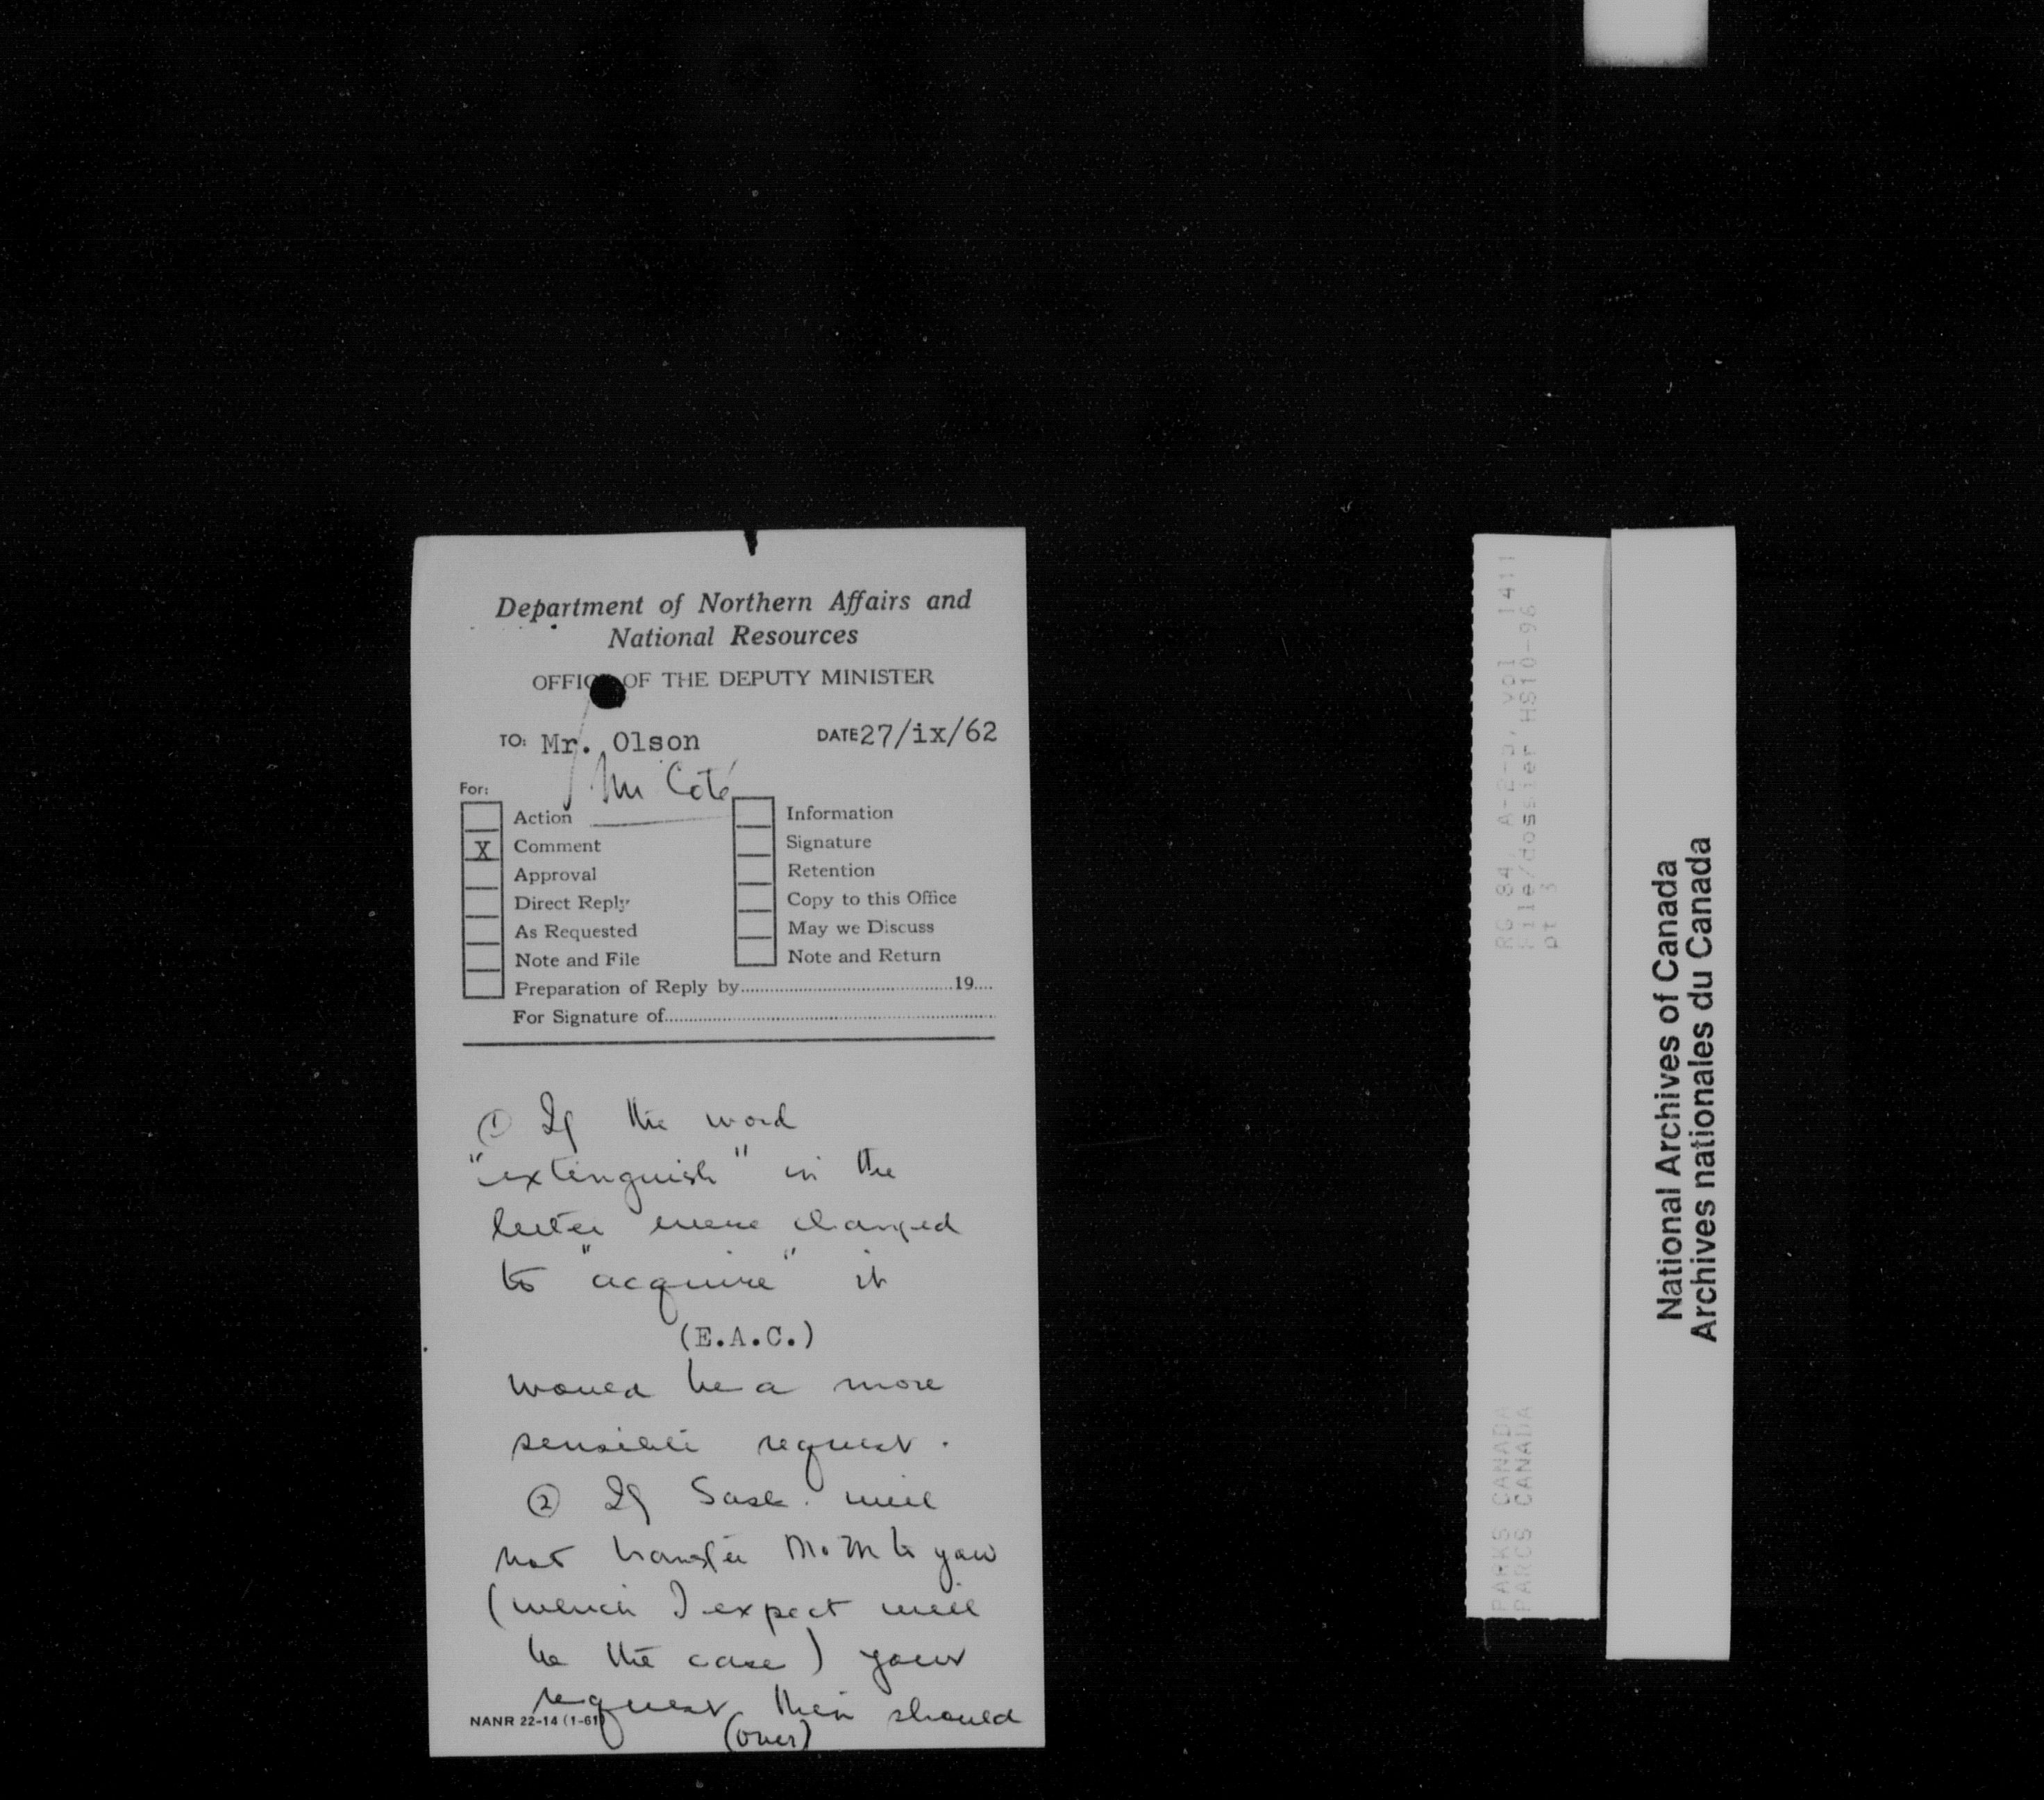 Department of Northern Affairs and
National Resources
OFFICE OF THE DEPUTY MINISTER
TO: Mr. Olson DATE 27/ix/62
Mr Coté
For:
Action Information
X Comment Signature
Approval Retention
Direct Reply Copy to this Office
As Requested May we Discuss
Note and File Note and Return
Preparation of Reply by 19
For Signature of
① If the word
"extinguish" in the
letter were changed
to "acquire" it
(E.A.C.)
would be a more
sensible request.
② If Sask. will
not transfer M. to you
(which I expect will
be the case) your
request then should
(over)
NANR 22-14 (1-61)
RG 84, A-2-a, vol 1411
File/dossier HS10-96
pt 3
PARKS CANADA
PARCS CANADA
National Archives of Canada
Archives nationales du Canada